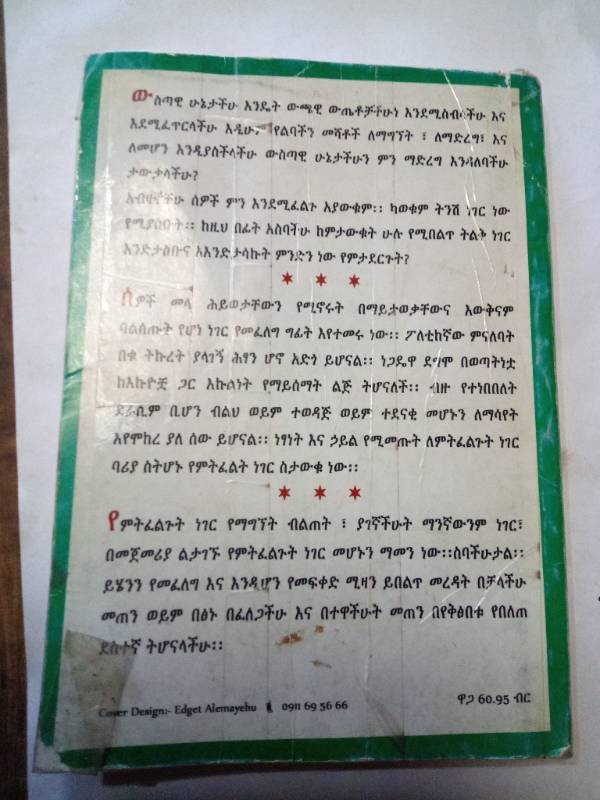 ውስጣዊ ሁኔታችሁ እንዴት ውጫዊ ውጤቶቻችሁን እንደሚስብላችሁ እና
እደሚፈጥርላችሁ እዲሁም የልባችን መሻቶች ለማግኘት ፣ ለማድረግ፣ እና
ለመሆን እንዲያስችላችሁ ውስጣዊ ሁኔታችሁን ምን ማድረግ እንዳለባችሁ
ታውቃላችሁ?
አብዛኛችሁ ሰዎች ምን እንደሚፈልጉ አያውቁም፡፡ ካወቁም ትንሽ ነገር ነው
የሚያስቡት፡፡ ከዚህ በፊት አስባችሁ ከምታውቁት ሁሉ የሚበልጥ ትልቅ ነገር
እንድታስቡና እእንድታሳኩት ምንድን ነው የምታደርጉት?
✶ ✶ ✶
ሰዎች መላ ሕይወታቸውን የሚኖሩት በማይታወቃቸውና አውቅናም
ባልሰጡት የሆነ ነገር የመፈለግ ግፊት እየተመሩ ነው፡፡ ፖለቲከኛው ምናለባት
በቂ ትኩረት ያላገኝ ሕፃን ሆኖ አድጎ ይሆናል፡፡ ነጋዴዋ ደግሞ በወጣትነቷ
ከእኩዮቿ ጋር እኩልነት የማይሰማት ልጅ ትሆናለች፡፡ ብዙ የተነበበለት
ደራሲም ቢሆን ብልህ ወይም ተወዳጅ ወይም ተደናቂ መሆኑን ለማሳየት
እየሞከረ ያለ ሰው ይሆናል፡፡ ነፃነት እና ኃይል የሚመጡት ለምትፈልጉት ነገር
ባሪያ ስትሆኑ የምትፈልት ነገር ስታውቁ ነው፡፡
✶ ✶ ✶
የምትፈልጉት ነገር የማግኘት ብልጠት ፣ ያገኛችሁት ማንኛውንም ነገር፣
በመጀመሪያ ልታገኙ የምትፈልጉት ነገር መሆኑን ማመን ነው፡፡ስባችሁታል፡፡
ይሄንን የመፈለግ እና እንዲሆን የመፍቀድ ሚዛን ይበልጥ መረዳት በቻላችሁ
መጠን ወይም በፅኑ በፈለጋችሁ እና በተዋችሁት መጠን በየቅፅበቱ የበለጠ
ደስተኛ ትሆናላችሁ፡፡
ዋጋ 60.95 ብር
Cover Design:- Edget Alemayehu 0911 69 56 66